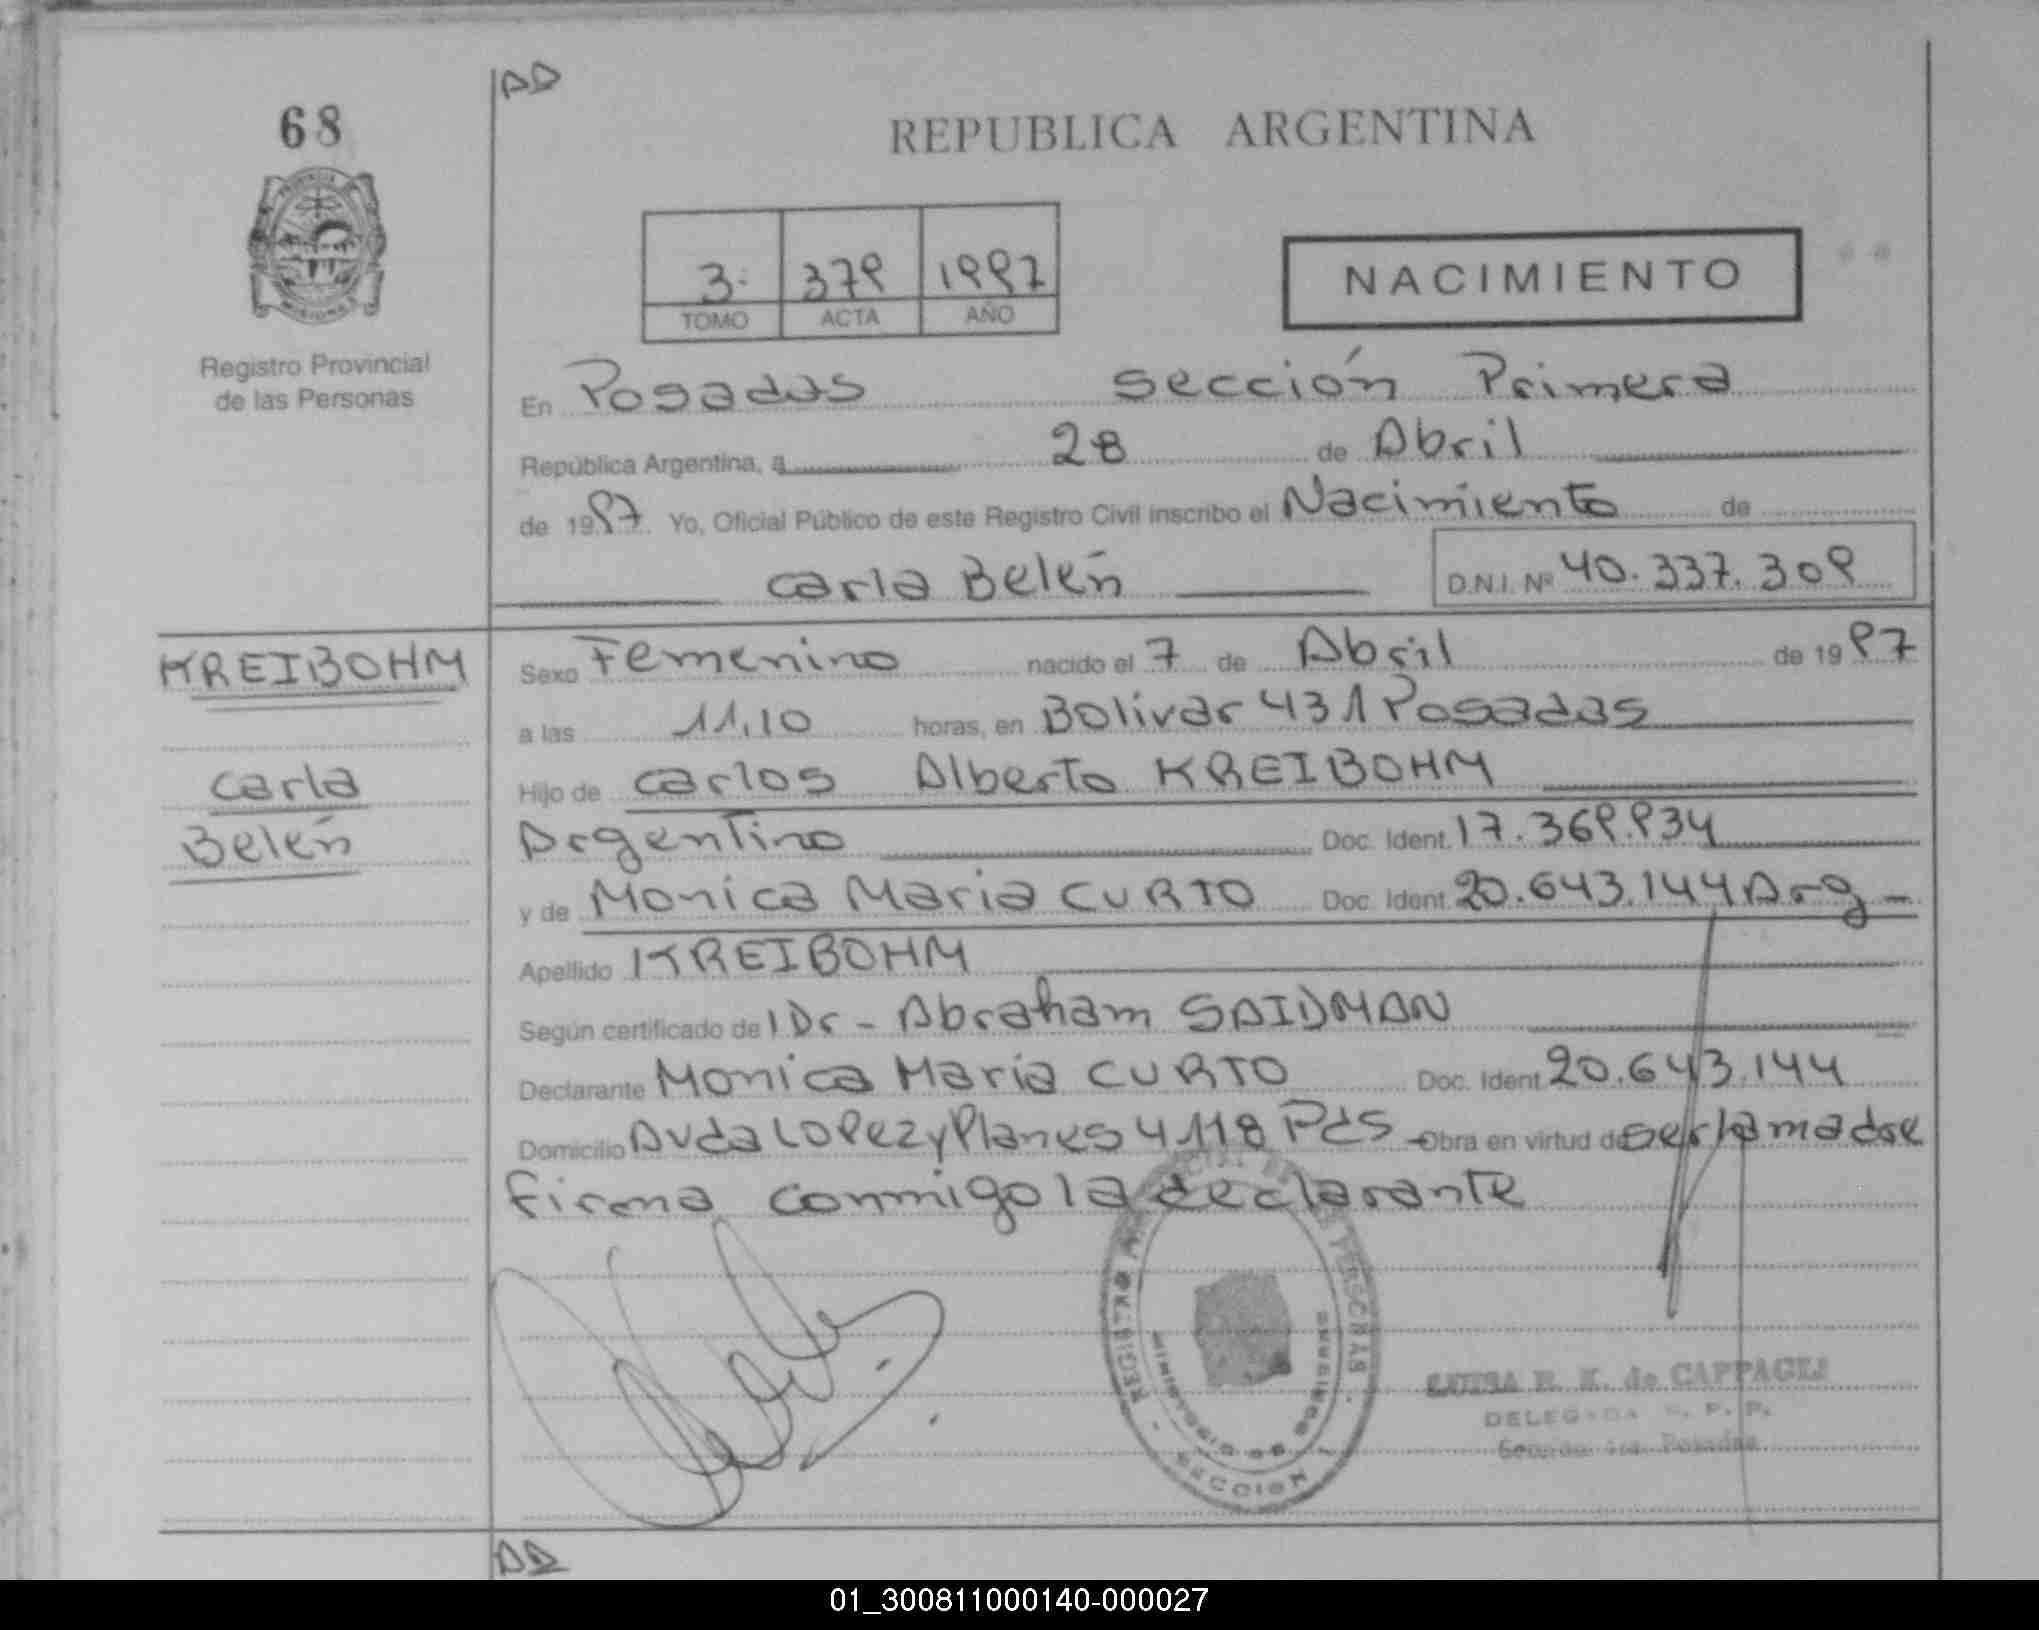 DD
68
REPUBLICA ARGENTINA
3. 379 1997
TOMO ACTA AÑO
NACIMIENTO
Registro Provincial
de las Personas
En Posadas sección Primera
República Argentina, a 28 de Abril
de 1997. Yo, Oficial Público de este Registro Civil inscribo el Nacimiento de
Carla Belén D.N.I. Nº 40.337.309
KREIBOHM
Carla
Belén
Sexo Femenino nacido el 7 de Abril de 1997
a las 11,10 horas, en Bolivar 431 Posadas
Hijo de Carlos Alberto KREIBOHM
Argentino Doc. Ident. 17.369.934
y de Monica Maria CURTO Doc. Ident. 20.643.144 Arg-
Apellido KREIBOHM
Según certificado del Dr- Abraham SAIDMAN
Declarante Monica Maria CURTO Doc. Ident. 20.643.144
Domicilio Avda LOPez y Planes 4118 Pds Obra en virtud de ser la madre
firma conmigo la declarante
PERSONAS
SECCION 1
de CAPPAGLI
DELEGADA R. P. P.
Posadas
DD
01_300811000140-000027